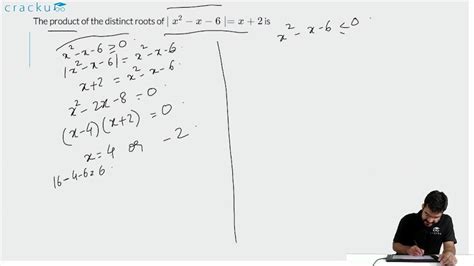 cracku
The product of the distinct roots of | x² − x − 6 |= x + 2 is
x² - x - 6 ≥ 0
|x² - x - 6| = x² - x - 6
x + 2 = x² - x - 6
x² - 2x - 8 = 0
(x-4)(x+2) = 0
x = 4 or -2
16 - 4 - 6 = 6
x² - x - 6 ≤ 0